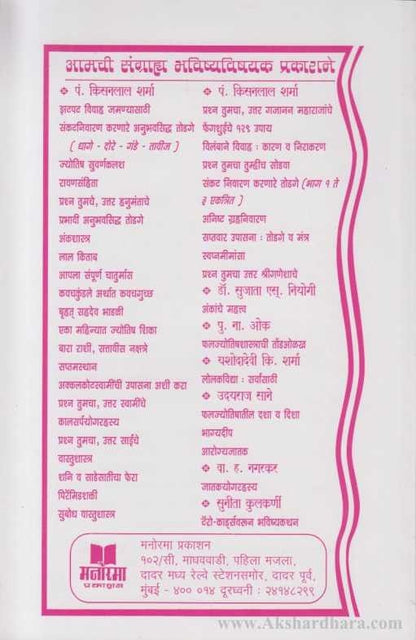 आमची संग्राह्य भविष्यविषयक प्रकाशने
❖ पं. किसनलाल शर्मा
झटपट विवाह जमण्यासाठी
संकटनिवारण करणारे अनुभवसिद्ध तोडगे
(धागे - दोरे - गंडे - ताबीज)
ज्योतिष सुवर्णकलश
रावणसंहिता
प्रश्न तुमचे, उत्तर हनुमंताचे
प्रभावी अनुभवसिद्ध तोडगे
अंकशास्त्र
लाल किताब
आपला संपूर्ण चातुर्मास
कवचकुंडले अर्थात कवचगुच्छ
बृहत् सहदेव भाडळी
एका महिन्यात ज्योतिष शिका
बारा राशी, सत्तावीस नक्षत्रे
सप्तमस्थान
अक्कलकोटस्वामींची उपासना अशी करा
प्रश्न तुमचा, उत्तर स्वामींचे
कालसर्पयोगरहस्य
प्रश्न तुमचा, उत्तर साईंचे
वास्तुशास्त्र
शनि व साडेसातीचा फेरा
पिरॅमिडशक्ती
सुबोध वास्तुशास्त्र
❖ पं. किसनलाल शर्मा
प्रश्न तुमचा, उत्तर गजानन महाराजांचे
फेंगशुईचे १२९ उपाय
विलंबाने विवाह : कारण व निराकरण
प्रश्न तुमचा तुम्हीच सोडवा
संकट निवारण करणारे तोडगे (भाग १ ते
३ एकत्रित)
अनिष्ट ग्रहनिवारण
सप्तवार उपासना : तोडगे व मंत्र
स्वप्नमीमांसा
प्रश्न तुमचा उत्तर श्रीगणेशाचे
❖ डॉ. सुजाता एस्. नियोगी
अंकांचे महत्त्व
❖ पु. ना. ओक
फलज्योतिषशास्त्राची तोंडओळख
❖ यशोदादेवी कि. शर्मा
लोलकविद्या : सर्वांसाठी
❖ उदयराज साने
फलज्योतिषातील दशा व दिशा
भाग्यदीप
आरोग्यजातक
❖ वा. ह. नगरकर
जातकयोगरहस्य
❖ सुनीता कुलकर्णी
टॅरो-कार्ड्सवरून भविष्यकथन
मनोरमा
प्रकाशन
मनोरमा प्रकाशन
१०२/सी, माधववाडी, पहिला मजला,
दादर मध्य रेल्वे स्टेशनसमोर, दादर पूर्व,
मुंबई - ४०० ०१४ दूरध्वनी : २४१४८२९९
www.Akshardhara.com